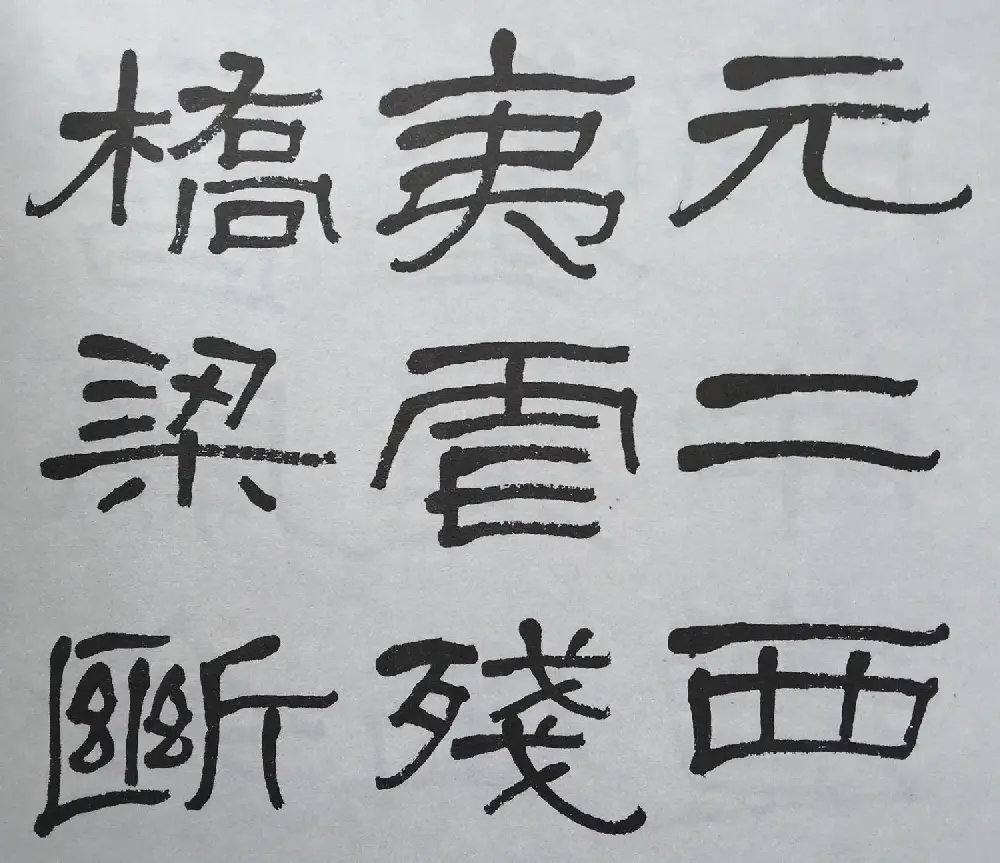 元二西
夷虐殘
橋梁斷